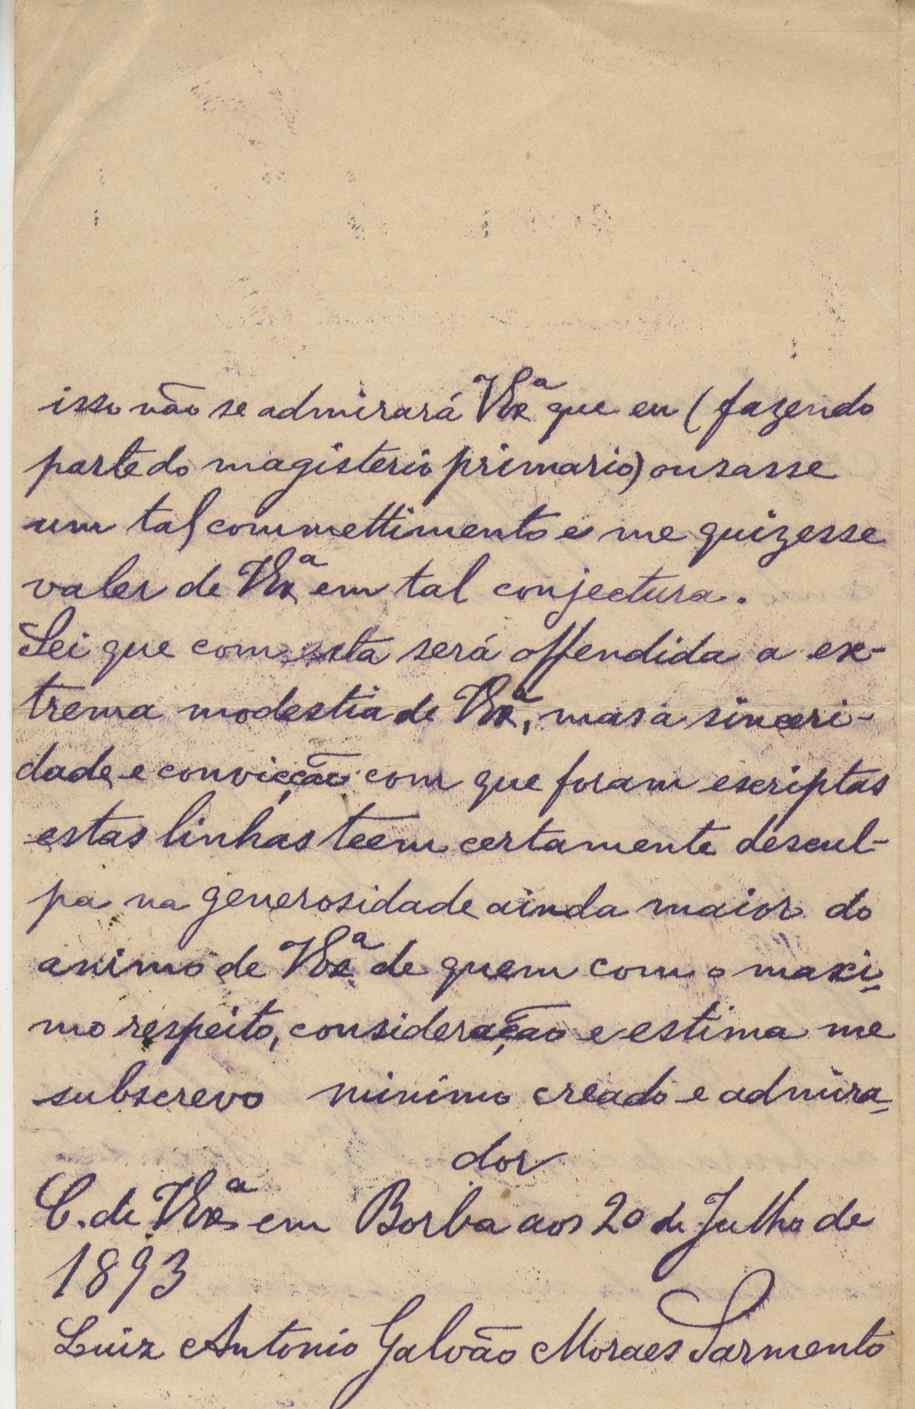 isso não se admirará VExª que eu (fazendo
parte do magisterio primario) ousasse
um tal commettimento e me quizesse
valer de VExª em tal conjectura.
Sei que com esta será offendida a ex-
trema modestia de VExª, mas a sinceri-
dade e convicção com que foram escriptas
estas linhas teem certamente descul-
pa na generosidade ainda maior do
animo de VExª de quem com o maxi-
mo respeito, consideração e estima me
subscrevo minimo creado e admira-
dor
C. de VExª em Borba aos 20 de Julho de
1893
Luiz Antonio Galvão Moraes Sarmento